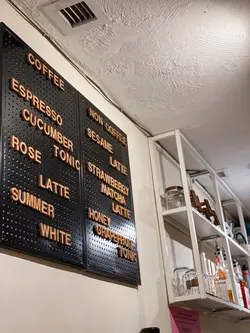 COFFEE
ESPRESSO
CUCUMBER
TONIC
ROSE
LATTE
SUMMER
WHITE
NON COFFEE
SESAME
LATTE
STRAWBERRY
MATCHA
LATTE
HONEY
GRAPEFRUIT
TONIC